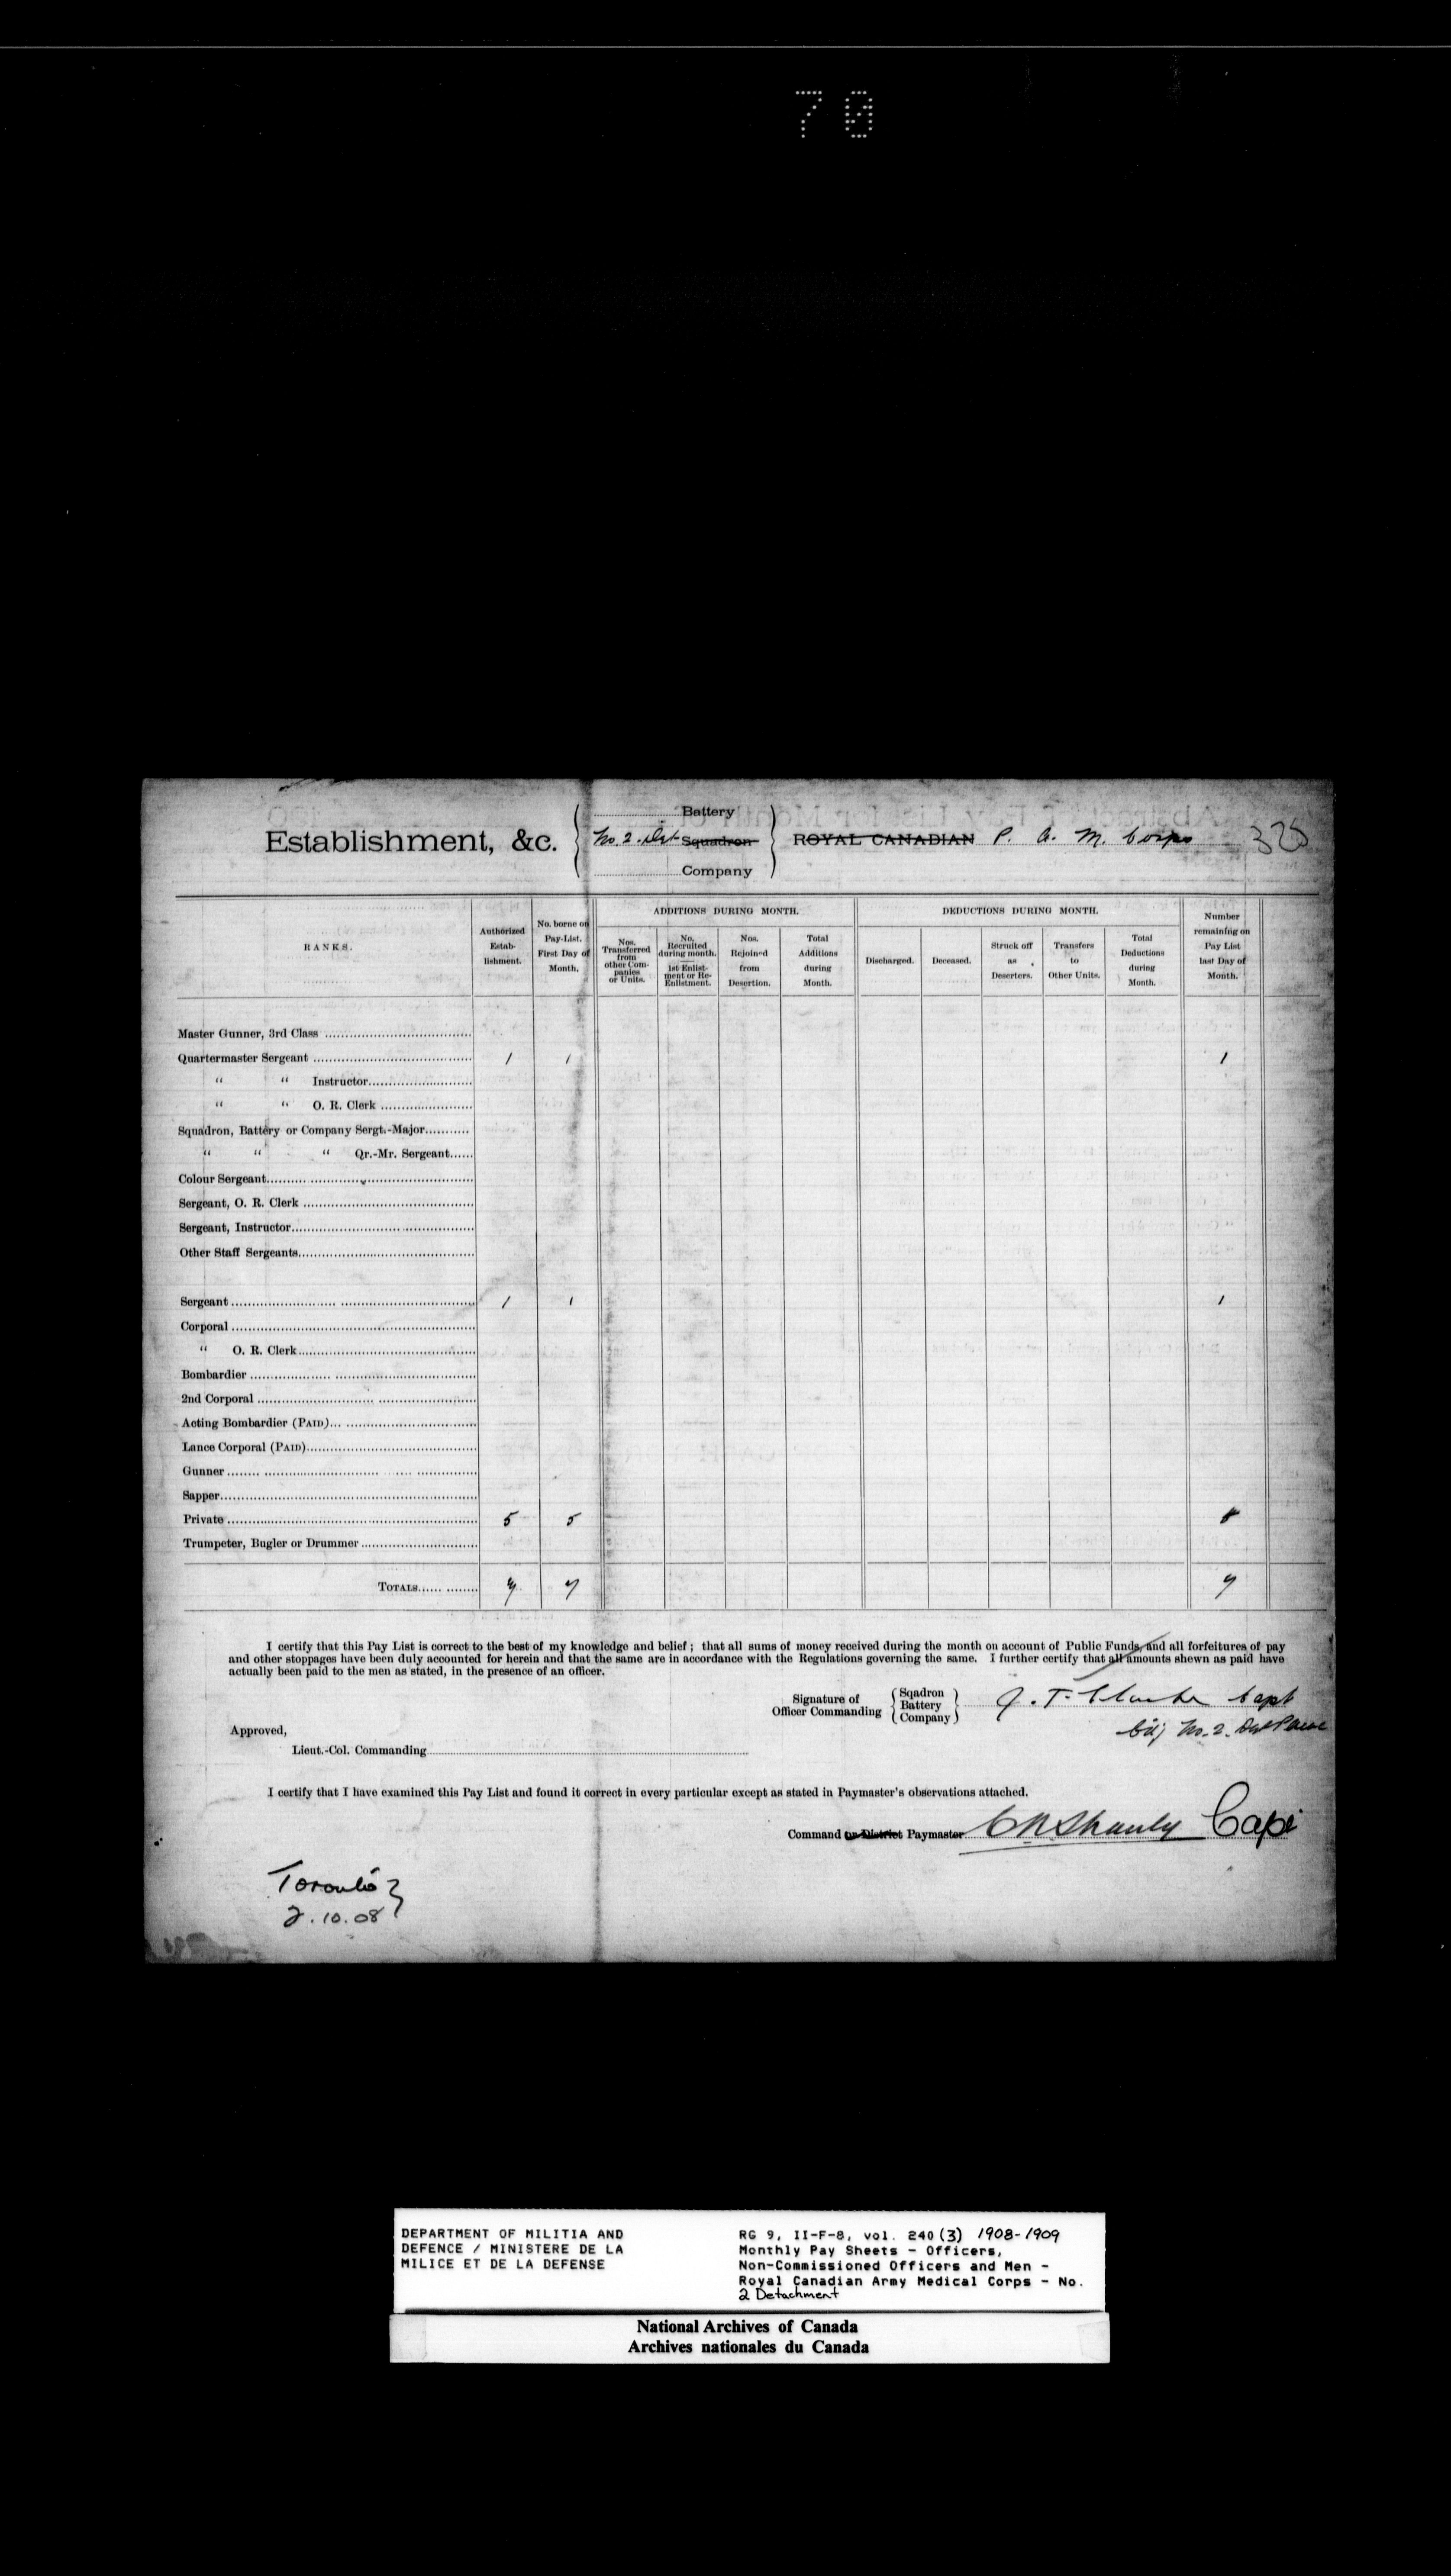 70
Establishment, &c.
Battery
No. 2. Det Squadron
Company
ROYAL CANADIAN P. A. M. Corps
325
RANKS.
Authorized Establishment.
No. borne on Pay-List. First Day of Month.
ADDITIONS DURING MONTH.
Nos. Transferred from other Companies or Units.
No. Recruited during month. 1st Enlistment or Re-Enlistment.
Nos. Rejoined from Desertion.
Total Additions during Month.
DEDUCTIONS DURING MONTH.
Discharged.
Deceased.
Struck off as Deserters.
Transfers to Other Units.
Total Deductions during Month.
Number remaining on Pay List last Day of Month.
Master Gunner, 3rd Class
Quartermaster Sergeant 1 1 1
“ “ Instructor
“ “ O. R. Clerk
Squadron, Battery or Company Sergt.-Major
“ “ “ Qr.-Mr. Sergeant
Colour Sergeant
Sergeant, O. R. Clerk
Sergeant, Instructor
Other Staff Sergeants
Sergeant 1 1 1
Corporal
“ O. R. Clerk
Bombardier
2nd Corporal
Acting Bombardier (PAID)
Lance Corporal (PAID)
Gunner
Sapper
Private 5 5
Trumpeter, Bugler or Drummer
TOTALS 7 7 7
I certify that this Pay List is correct to the best of my knowledge and belief; that all sums of money received during the month on account of Public Funds, and all forfeitures of pay
and other stoppages have been duly accounted for herein and that the same are in accordance with the Regulations governing the same. I further certify that all amounts shewn as paid have
actually been paid to the men as stated, in the presence of an officer.
Signature of Officer Commanding
Sqadron
Battery
Company
J. T. Clarke Capt
No. 2. Det
Approved,
Lieut.-Col. Commanding
I certify that I have examined this Pay List and found it correct in every particular except as stated in Paymaster's observations attached.
Command or District Paymaster C N Shanly Capt
Toronto
2.10.08
DEPARTMENT OF MILITIA AND
DEFENCE / MINISTERE DE LA
MILICE ET DE LA DEFENSE
RG 9, II-F-8, vol. 240 (3) 1908-1909
Monthly Pay Sheets - Officers,
Non-Commissioned Officers and Men -
Royal Canadian Army Medical Corps - No.
2 Detachment
National Archives of Canada
Archives nationales du Canada